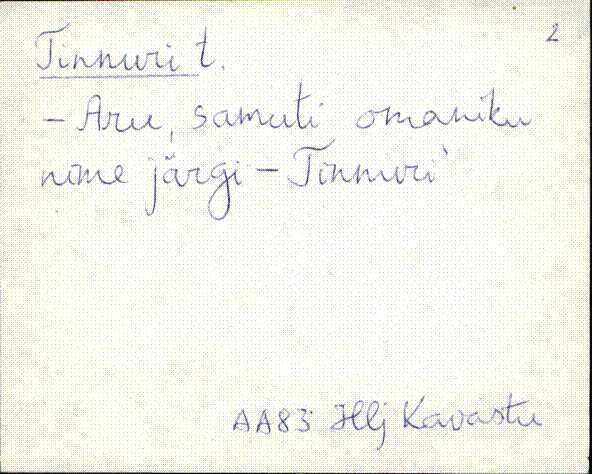 2
Tinnuri t.
- Aru, samuti omaniku
nime järgi - Tinnuri
AA83 Hlj Kavastu